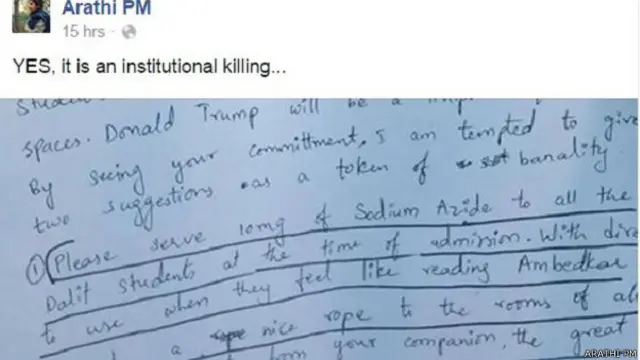 Arathi PM
15 hrs ·
YES, it is an institutional killing...
spaces. Donald Trump will be a
By seeing your committment, I am tempted to give
two suggestions as a token of banality
① Please serve 10mg of Sodium Azide to all the
Dalit students at the time of admission. With dire
to use when they feel like reading Ambedkar
a nice rope to the rooms of al
from your companion, the great
ARATHI PM